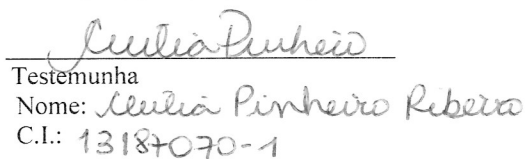 Cecília Pinheiro
Testemunha
Nome: Cecília Pinheiro Ribeiro
C.I.: 13187070-1